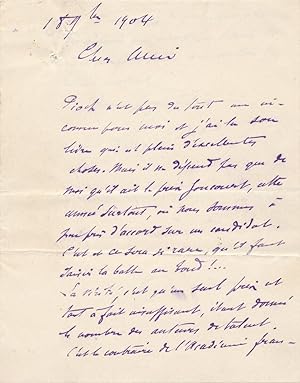 18 9bre 1904
Cher Ami
Pioch n'est pas du tout un in-
connu pour moi et j'ai lu son
livre qui est plein d'excellentes
choses. Mais il ne dépend pas que de
moi qu'il ait le prix Goncourt, cette
année surtout, où nous sommes à
peu près d'accord sur un candidat.
C'est et ce sera si rare, qu'il faut
saisir la balle au bond !...
La vérité, c'est qu'un seul prix est
tout à fait insuffisant, étant donné
le nombre des auteurs de talent.
C'est le contraire de l'Académie fran-